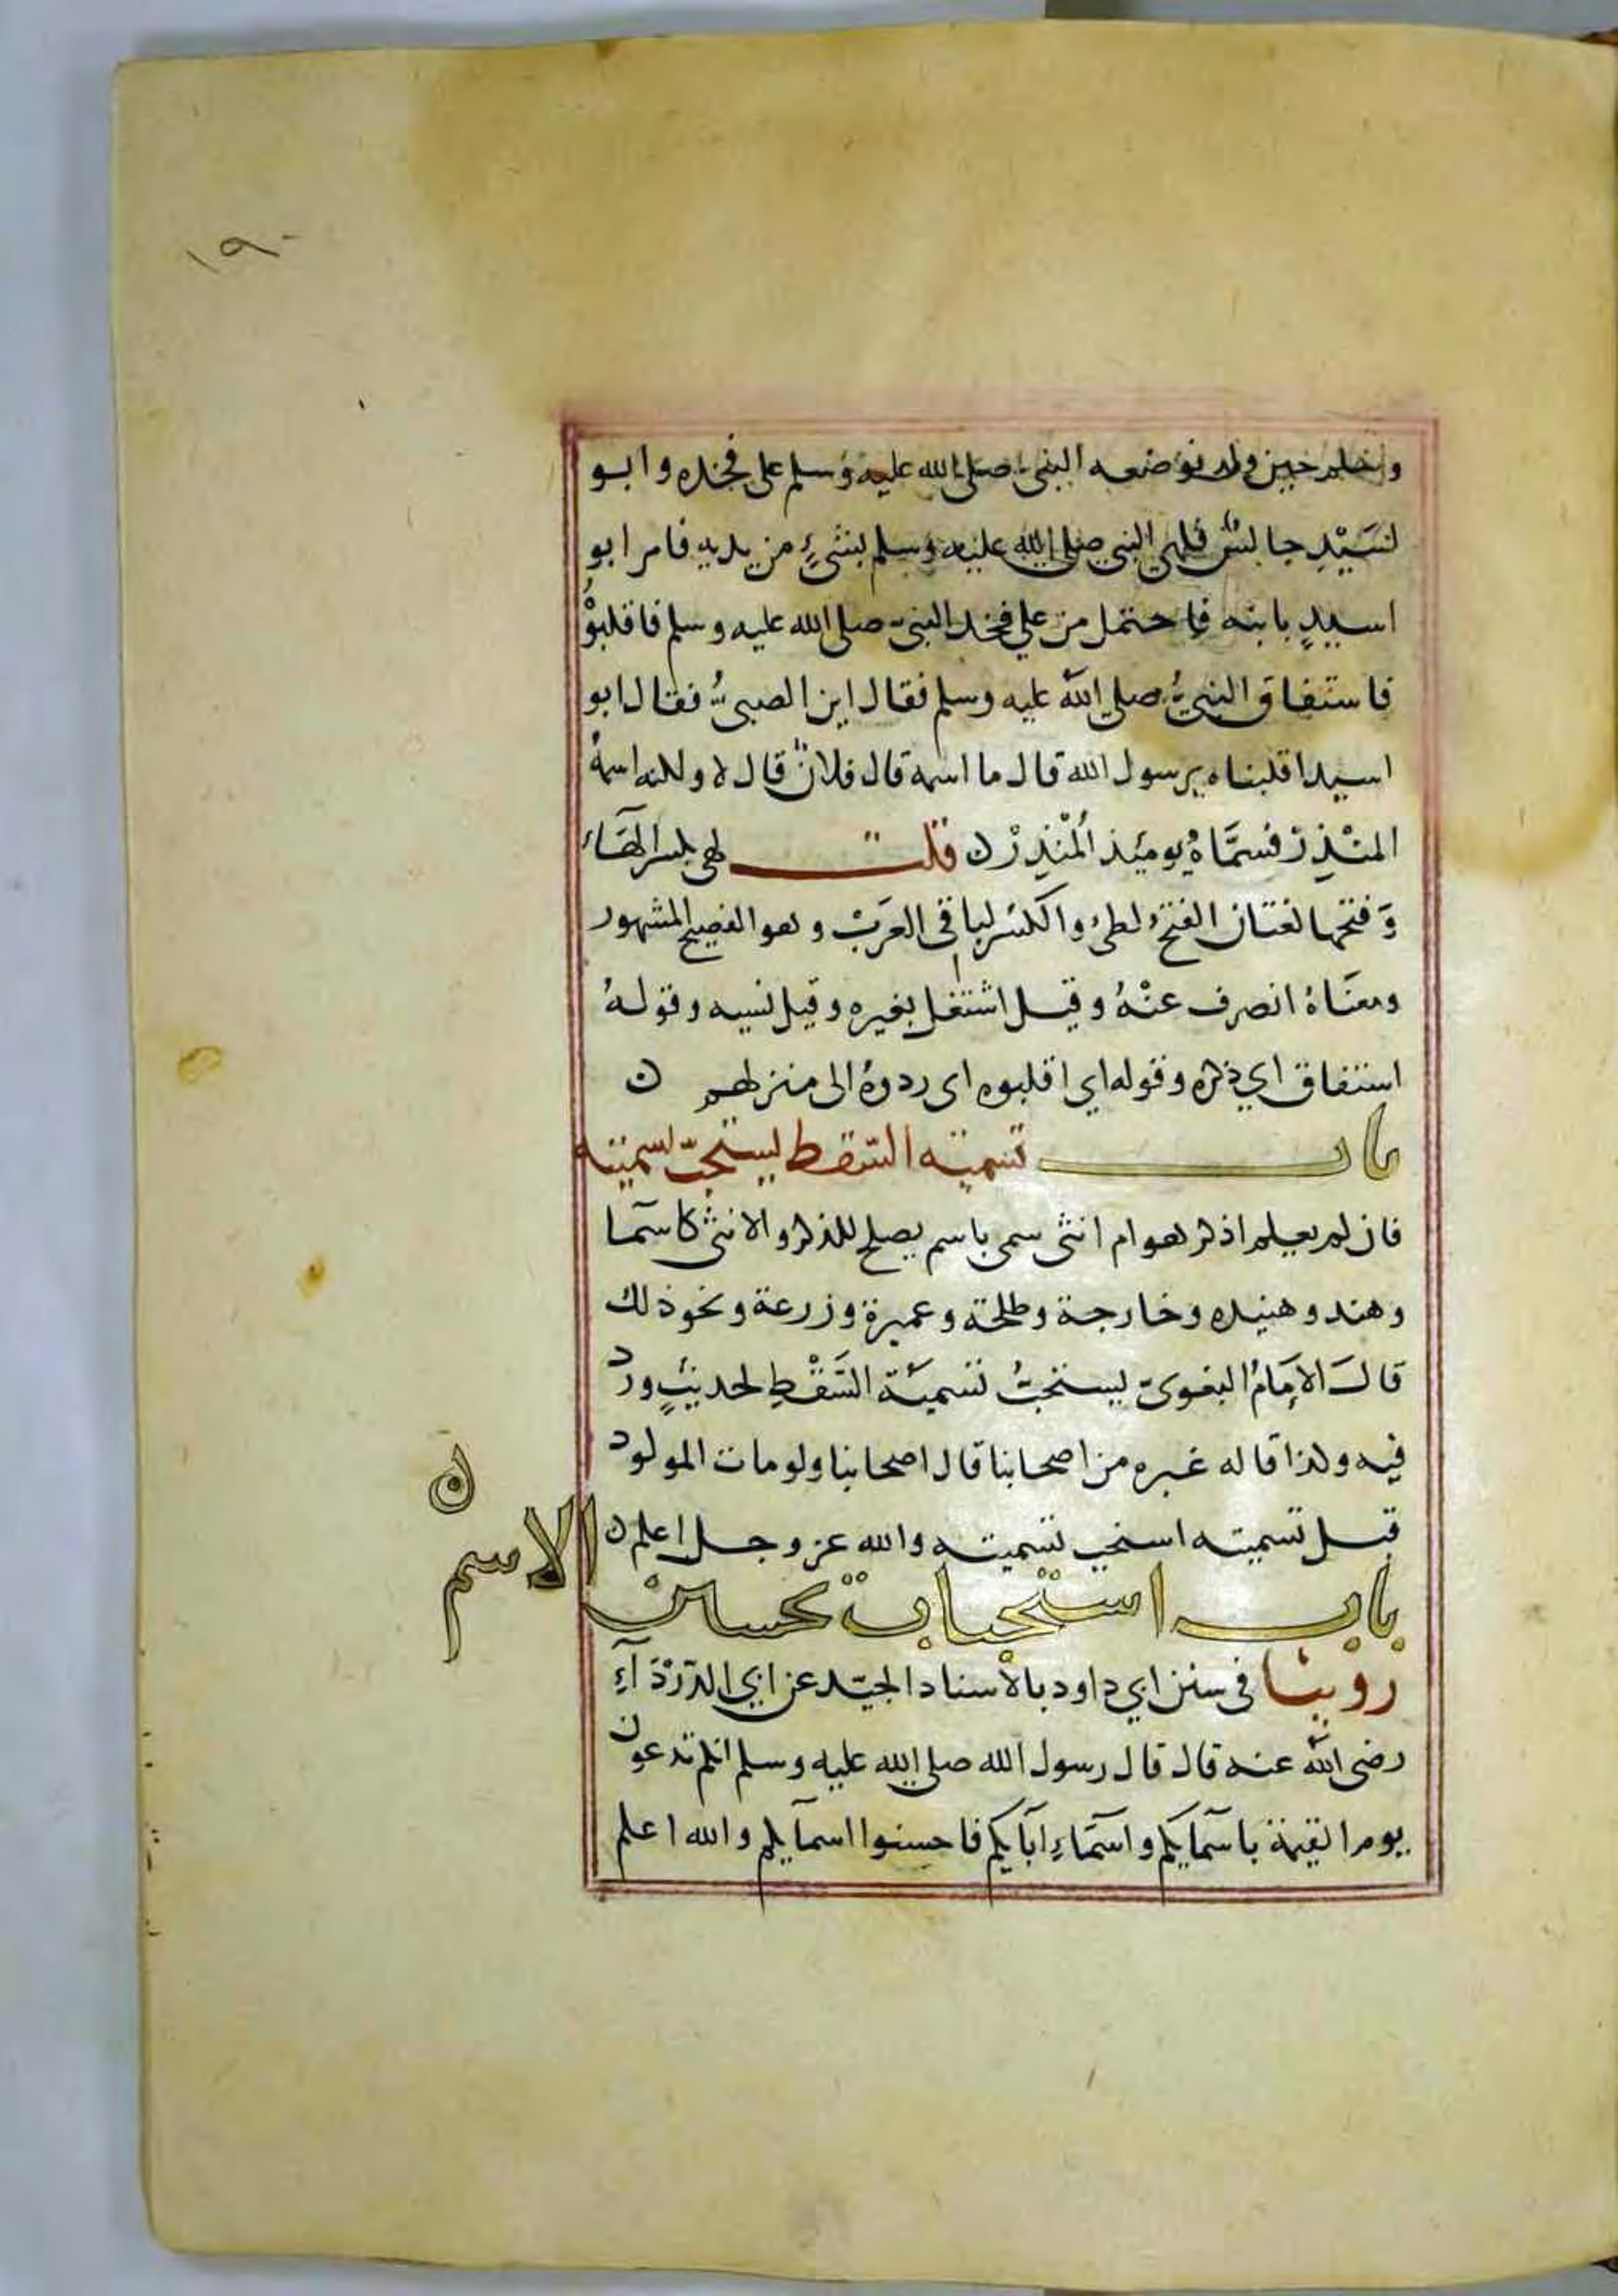 ١٩٠
وسلم حين ولد فوضعه النبي صلى الله عليه وسلم على فخذه وابو
اسَيْدٍ جالسٌ فلهي النبي صلى الله عليه وسلم بشيءٍ من يديه فامر ابو
اسيدٍ بابنه فاحتمل من علي فخذ النبي صلى الله عليه وسلم فاقلبوْهُ
فاستفاق النبيُّ صلى الله عليه وسلم فقال اين الصبيُّ فقال ابو
اسيد اقلبناه يرسول الله قال ما اسمه قال فلانٌ قال لا ولكنه اسمهُ
المنْذِرْ فسمَّاهُ يومئذ اَلْمنْذِرْ ن قلت لهى بكسر الهَاء
وَفتحها لغتان الفتحُ لطيُ والكسْر لباقى العَرَبْ وهو الفصيح المشهور
ومعنَاهُ انصرف عنْهُ وقيل اشتغل بغيره وقيل نسيه وقولهُ
استفاق اي ذكره وقوله اي اقلبوه اى ردوهُ الى منزلهم ن
باب تسمية السّقط يستحبّ تسميته
فان لم يعلم اذكر هو ام انثى سمى باسم يصلح للذكر والانثى كاسمآ
وهند وهنيده وخارجة وطلحة وعميرة وزرعة ونحو ذلك
قالَ الإمَامُ البغوىّ يستحبُّ تسميَة السَّقْطِ لحديثٍ ورد
فيه وكذا قاله غيره من اصحابنا قال اصحابنا ولو مات المولود
قبل تسميته استحب تسميته والله عز وجل اعلم ن
باب استحباب تحسين الاسم ن
روينا فى سنن ابي داود بالأسناد الجيّد عن ابي الدّرْدَآءِ
رضى الله عنه قال قال رسول الله صلى الله عليه وسلم انكم تدعون
يوم القيمة باسمآيكم واسمَآءِ ابآيكم فاحسنوا اسمآيكم والله اعلم